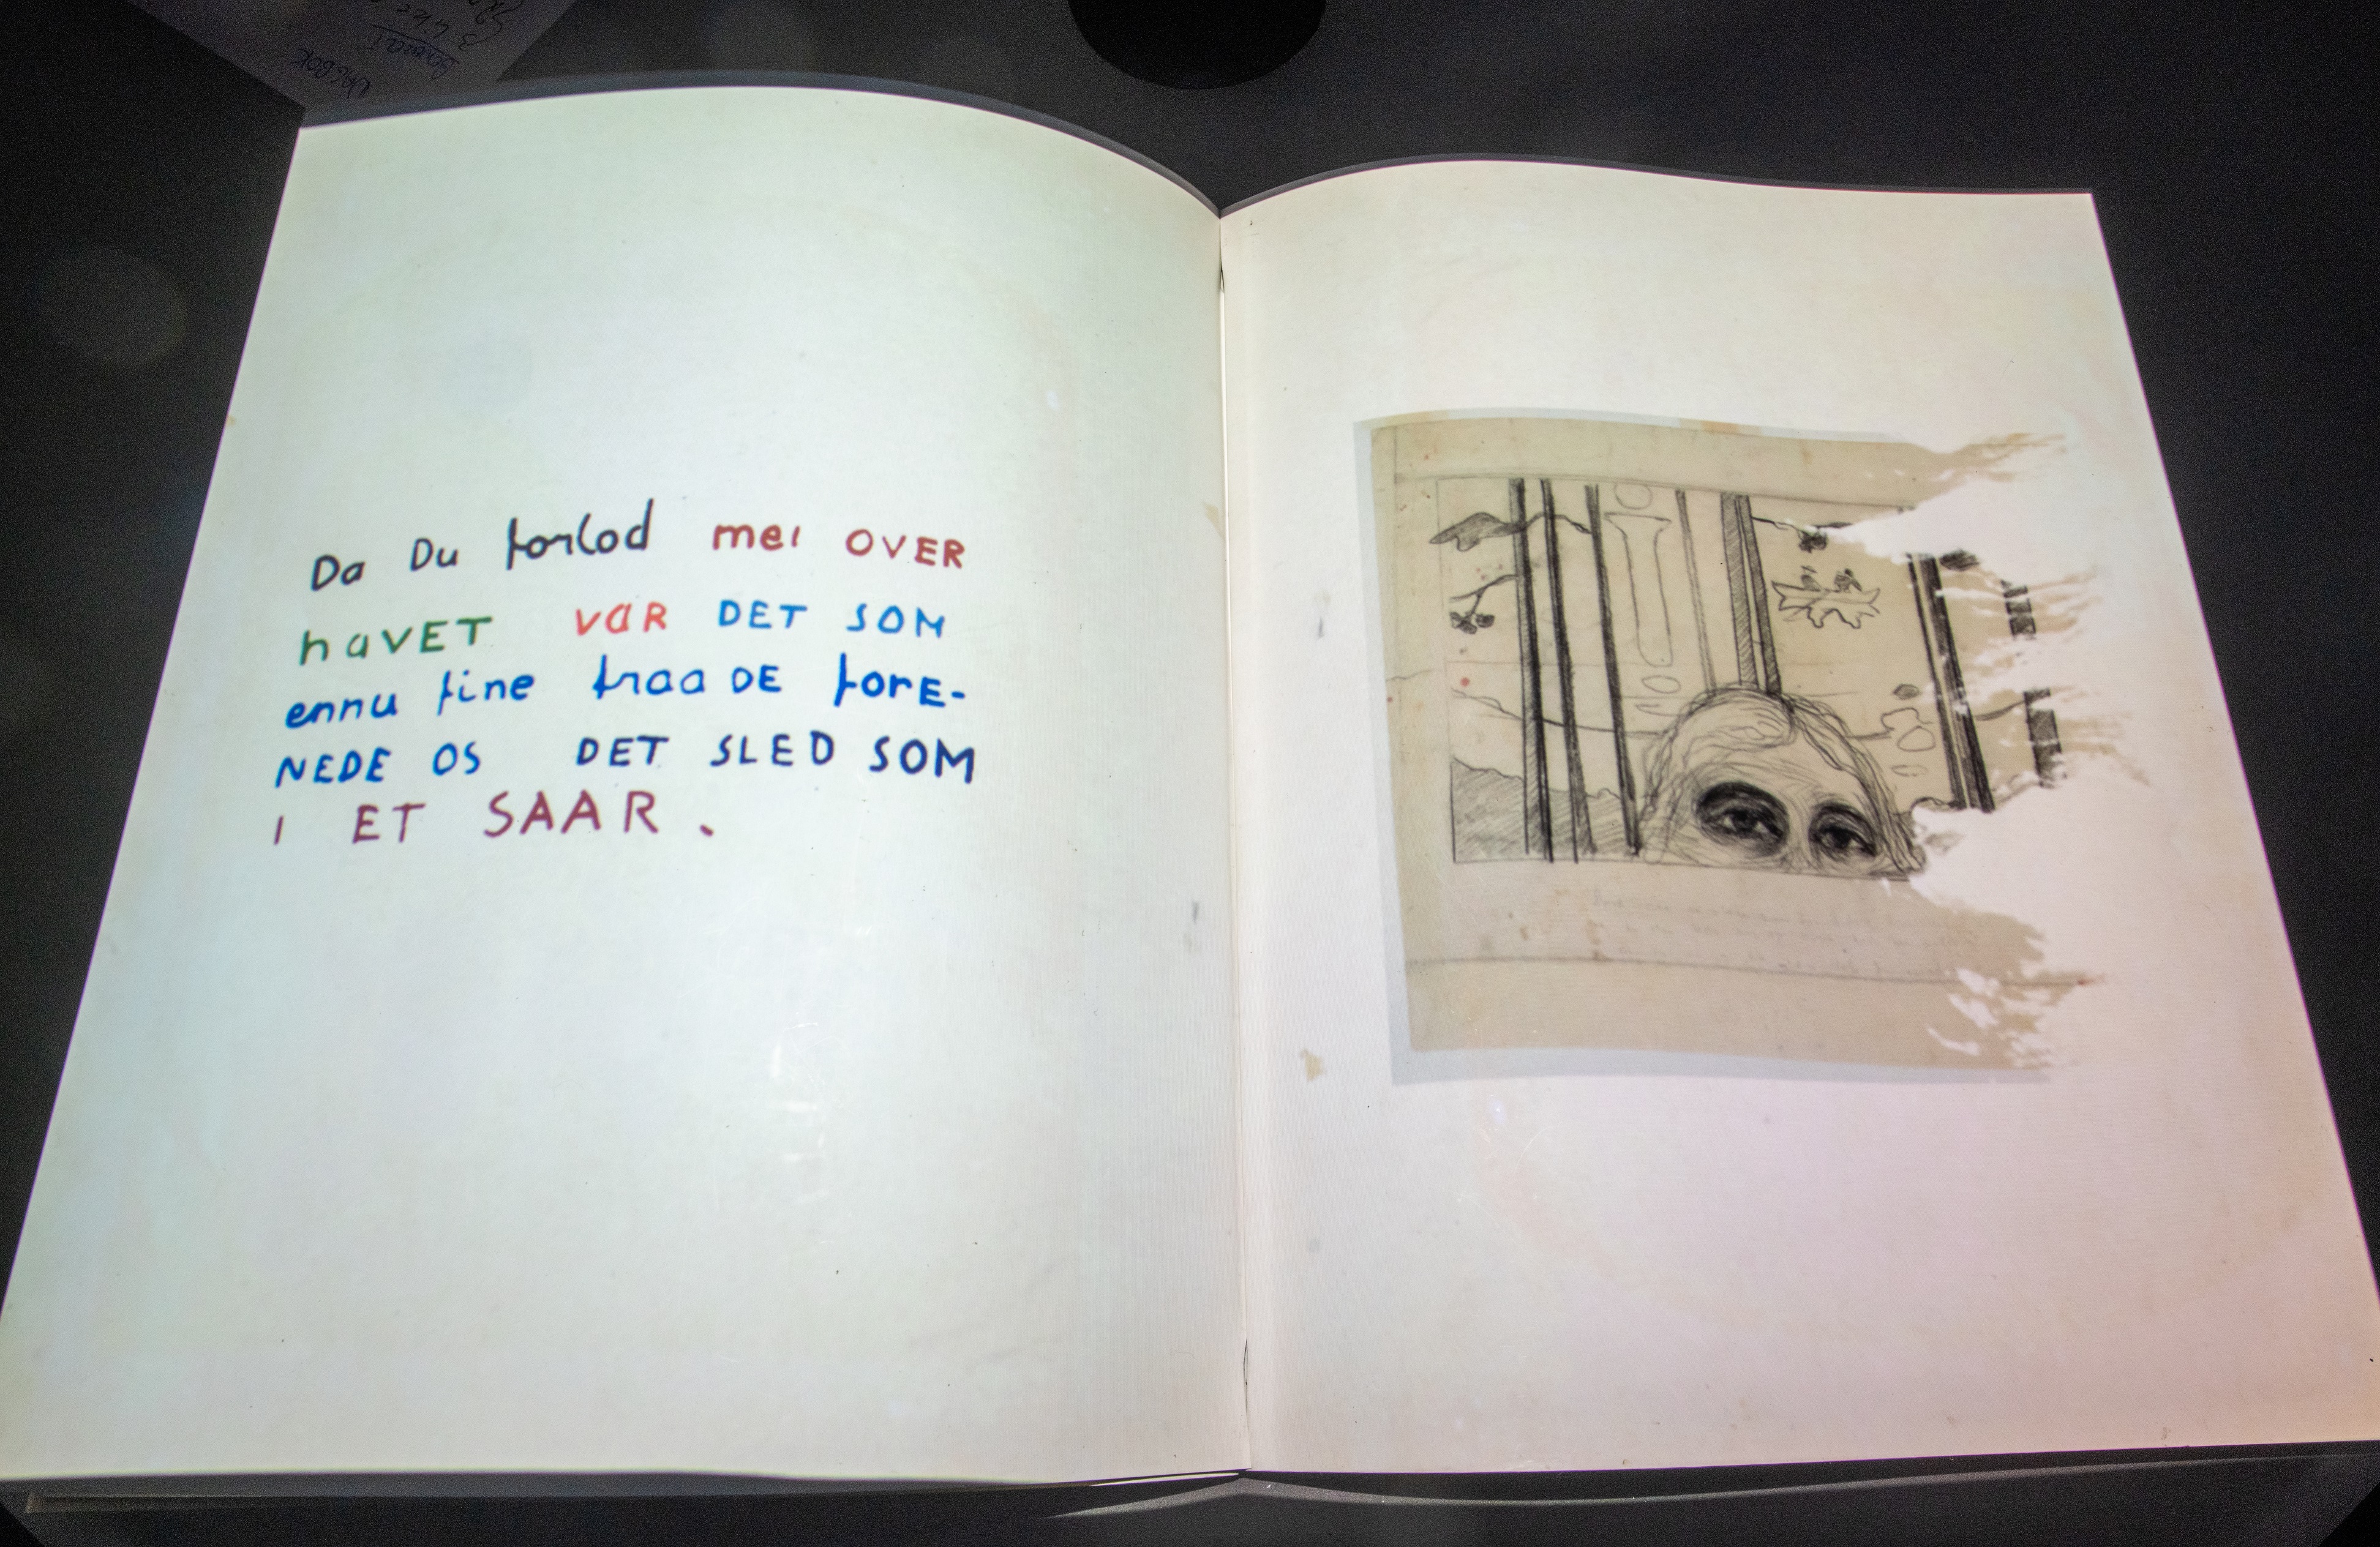 DAGBOK
Da Du forlod mei OVER
havET vaR DET SOM
ennu fine traaDE forE-
NEDE OS DET SLED SOM
I ET SAAR.